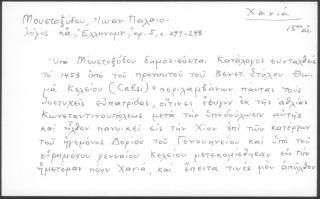 Μουστοξύδου, Ἰωαν Παλαιο-
λόγος κἄ, Ἑλληνομν, ἀρ. 5, σ. 297-298
Χανιά
15ος αἰ
"Ὑπὸ Μουστοξύδου δημοσιεύεται Κατάλογος συνταχθεὶς
τὸ 1453 ὑπὸ τοῦ προνοητοῦ τοῦ Βενετ. στόλου Θω-
μᾶ Κελσίου (Celsi) "περιλαμβάνων πάντας τοὺς
δυστυχεῖς εὐπατρίδας, οἵτινες ἔφυγον ἐκ τῆς ἀθλίας
Κωνσταντινουπόλεως μετὰ τὴν ὑποδούλωσιν αὐτῆς
καὶ ἦλθον πανοικεὶ εἰς τὴν Χίον ἐπὶ τῶν κατέργων
τοῦ ἡγεμόνος Δορίου τοῦ Γενουηνσίου καὶ ὑπὸ τοῦ
εἰρημένου γενναίου Κελσίου μετεκομίσθησαν εἰς τὴν
ἡμετέραν πόλιν Χανιά, καὶ ἔπειτα τινὲς μὲν ἀπῆλθον